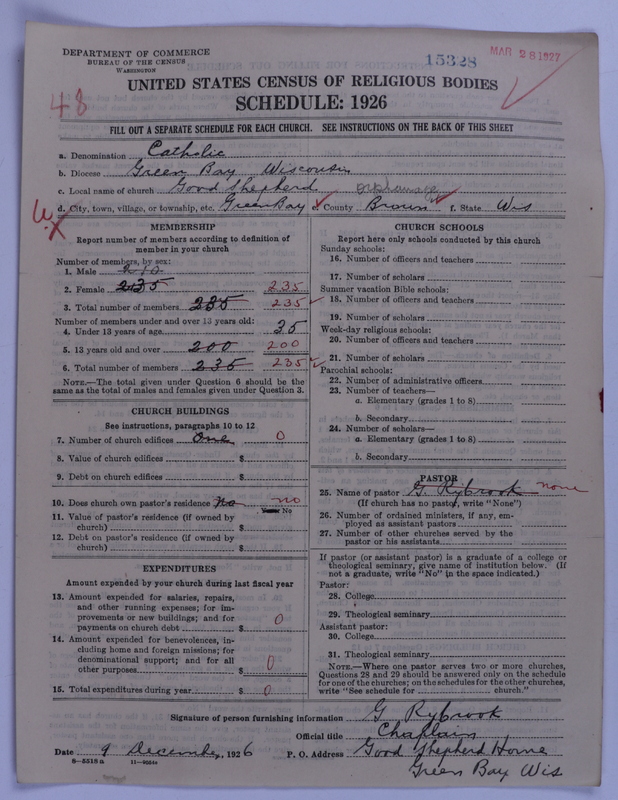 DEPARTMENT OF COMMERCE
BUREAU OF THE CENSUS
WASHINGTON
15328
MAR 28 1927
48
UNITED STATES CENSUS OF RELIGIOUS BODIES
SCHEDULE: 1926
FILL OUT A SEPARATE SCHEDULE FOR EACH CHURCH. SEE INSTRUCTIONS ON THE BACK OF THIS SHEET
a. Denomination Catholic
b. Diocese Green Bay Wisconsin
c. Local name of church Good Shepherd orphanage
d. City, town, village, or township, etc. Green Bay e. County Brown f. State Wis
MEMBERSHIP
Report number of members according to definition of
member in your church
Number of members, by sex:
1. Male
2. Female 235 235
3. Total number of members 235 235
Number of members under and over 13 years old:
4. Under 13 years of age 35
5. 13 years old and over 200 200
6. Total number of members 235 235
NOTE.—The total given under Question 6 should be
same as the total of males and females given under Question 3.
CHURCH BUILDINGS
See instructions, paragraphs 10 to 12
7. Number of church edifices one 0
8. Value of church edifices $
9. Debt on church edifices $
10. Does church own pastor's residence No no
Yes or No
11. Value of pastor's residence (if owned by
church) $
12. Debt on pastor's residence (if owned by
church) $
EXPENDITURES
Amount expended by your church during last fiscal year
13. Amount expended for salaries, repairs,
and other running expenses; for im-
provements or new buildings; and for
payments on church debt $ 0
14. Amount expended for benevolences, in-
cluding home and foreign missions; for
denominational support; and for all
other purposes $ 0
15. Total expenditures during year $ 0
CHURCH SCHOOLS
Report here only schools conducted by this church
Sunday schools:
16. Number of officers and teachers
17. Number of scholars
Summer vacation Bible schools:
18. Number of officers and teachers
19. Number of scholars
Week-day religious schools:
20. Number of officers and teachers
21. Number of scholars
Parochial schools:
22. Number of administrative officers
23. Number of teachers—
a. Elementary (grades 1 to 8)
b. Secondary
24. Number of scholars—
a. Elementary (grades 1 to 8)
b. Secondary
PASTOR
25. Name of pastor G. Rybrook none
(If church has no pastor, write "None")
26. Number of ordained ministers, if any, em-
ployed as assistant pastors
27. Number of other churches served by the
pastor or his assistants
If pastor (or assistant pastor) is a graduate of a college or
theological seminary, give name of institution below. (If
not a graduate, write "No" in the space indicated.)
Pastor:
28. College
29. Theological seminary
Assistant pastor:
30. College
31. Theological seminary
NOTE.—Where one pastor serves two or more churches,
Questions 28 and 29 should be answered only on the schedule
for one of the churches; on the schedules for the other churches,
write "See schedule for church."
Signature of person furnishing information G Rybrook
Official title Chaplain
Date 9 December, 1926 P. O. Address Good Shepherd Home
8—5518a Green Bay Wis